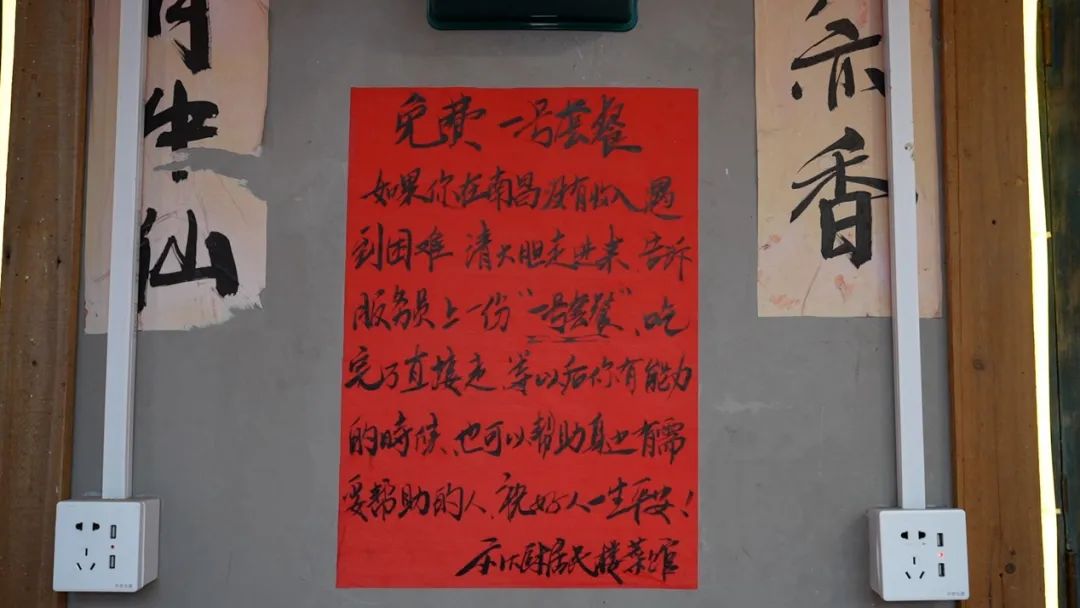 仙
免費 一号套餐
如果你在南昌没有收入 遇
到困难 清大胆走进来 告诉
服务员上一份“一号套餐”、吃
完了直接走 等以后你有能力
的時候、也可以帮助身边有需
要帮助的人、祝好人一生平安！
大厨居民楼菜馆
亦香